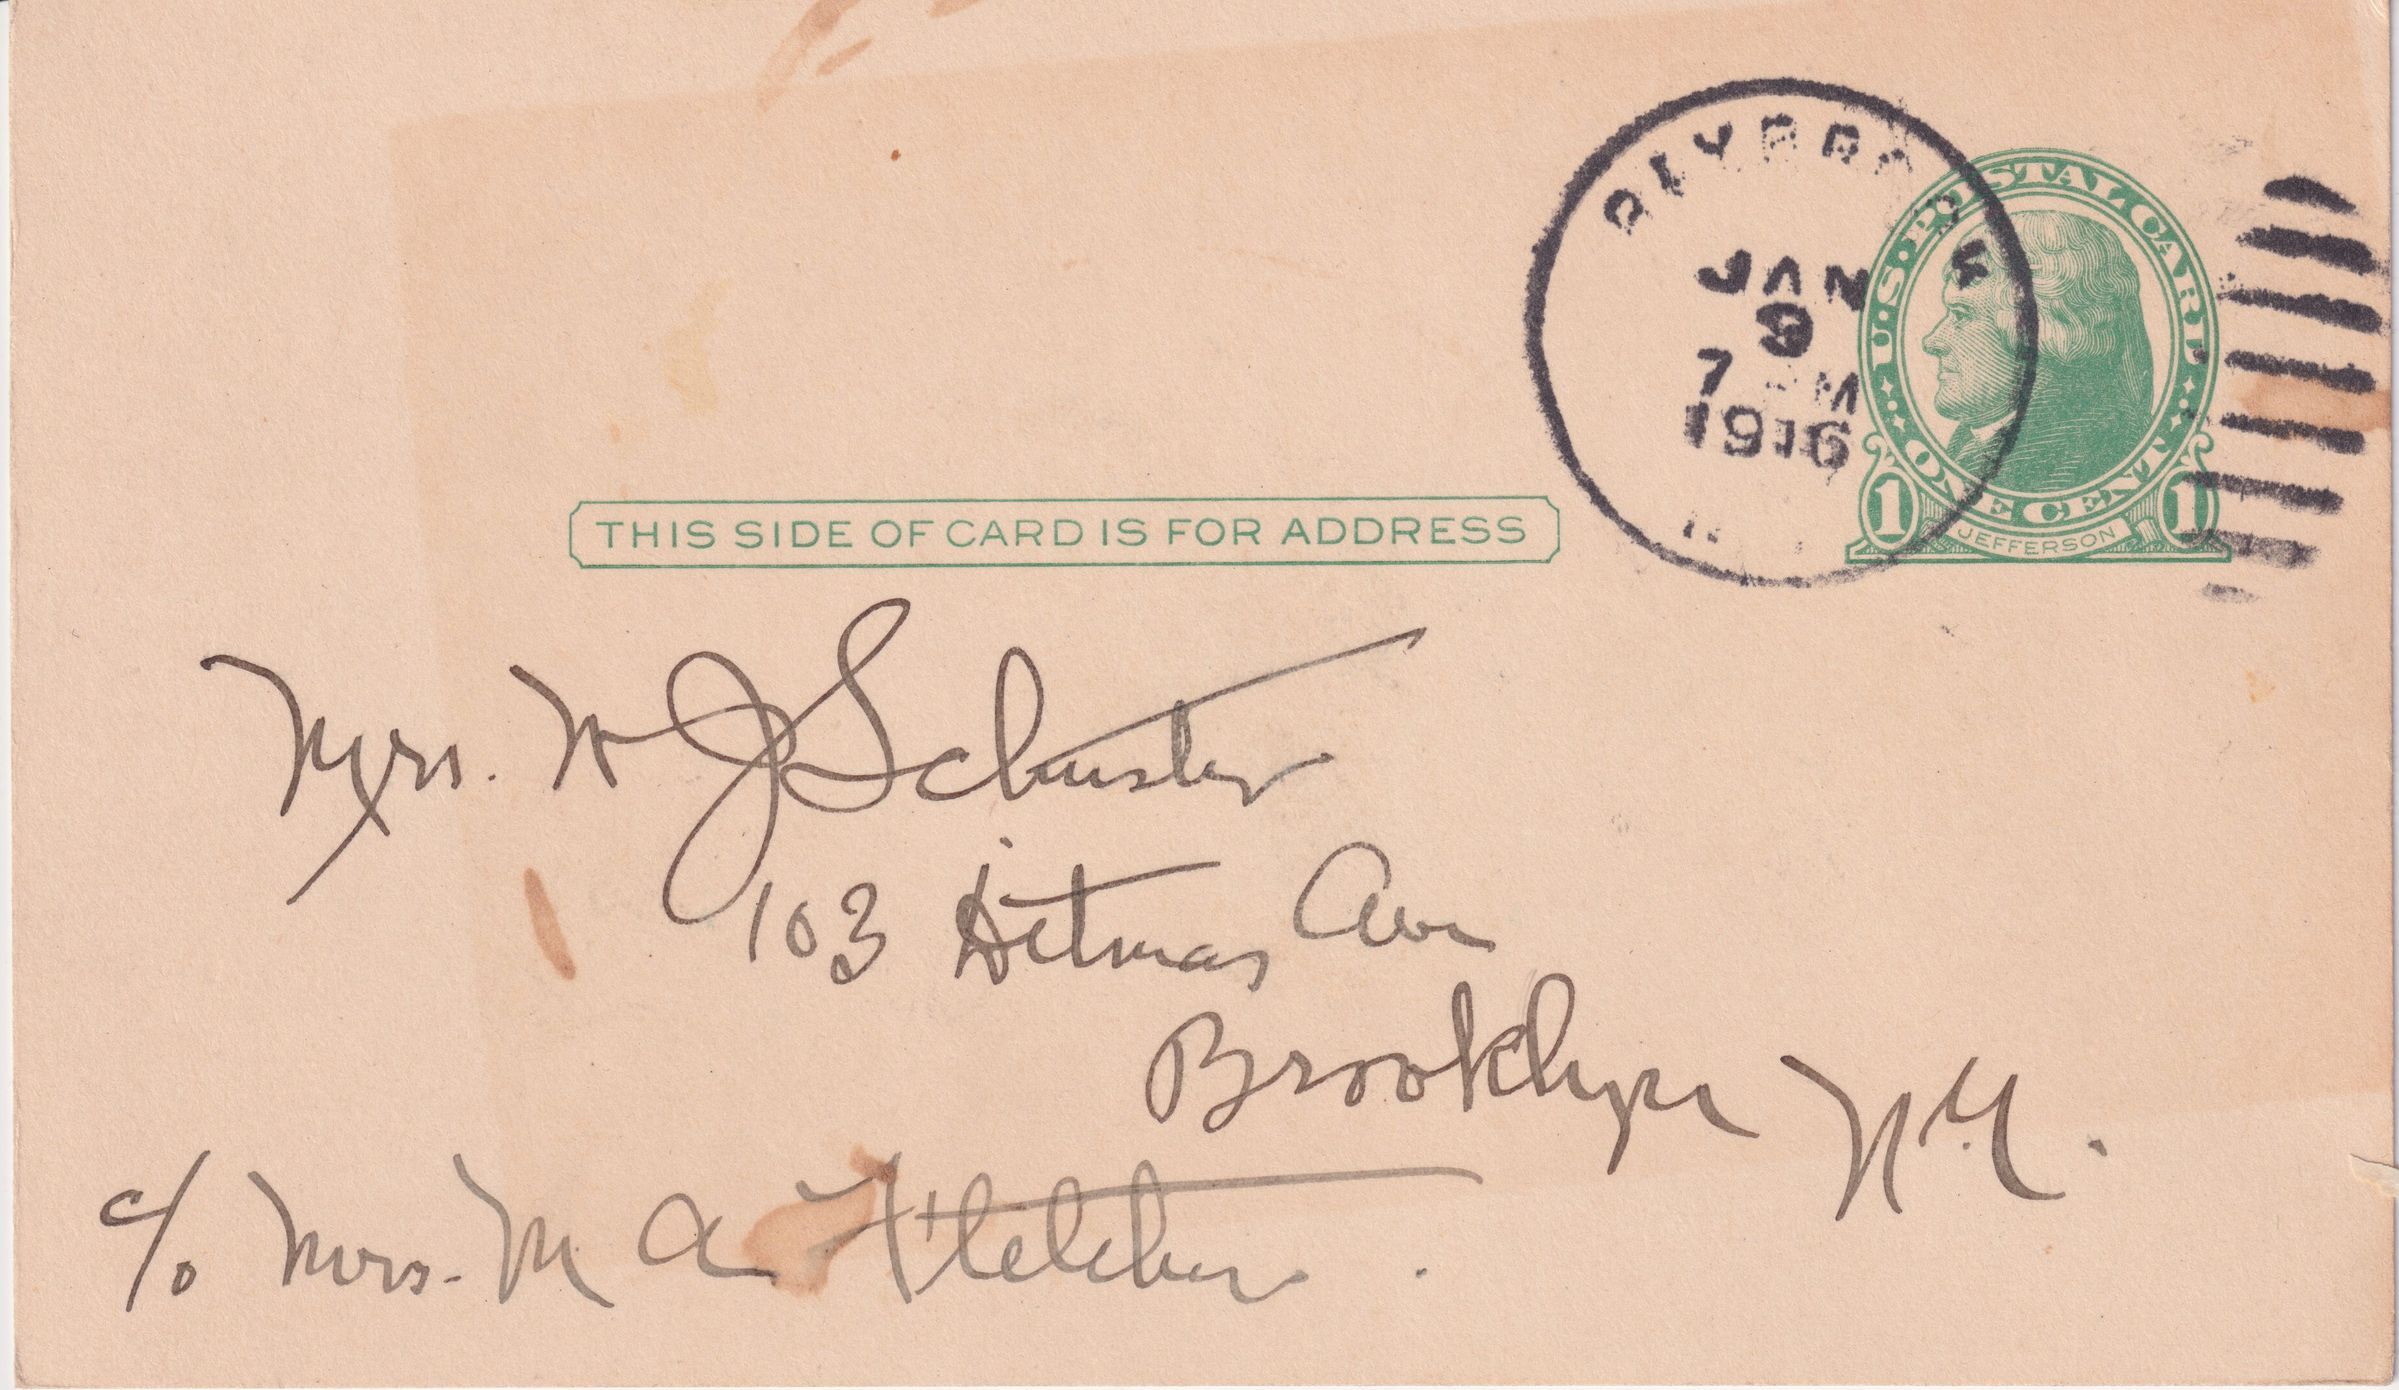 JAN
9
7 M
1916
U.S. POSTAL CARD
ONE CENT
1 JEFFERSON 1
THIS SIDE OF CARD IS FOR ADDRESS
Mrs. W J Schuster
103 Ditmas Ave
Brooklyn N.Y.
c/o Mrs. M A Fletcher.